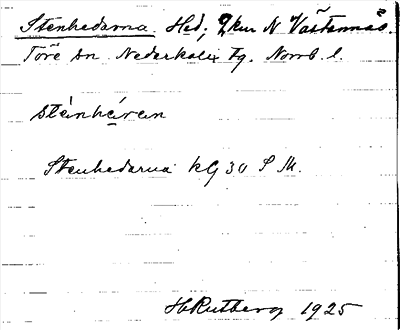 Stenhedarna. Hed; 2km N Västannäs.
Töre sn. Nederkalix tg. Norrb. l.
sténhæ̀ran
Stenhedarna kG 30 S Sk.
H Rutberg 1925